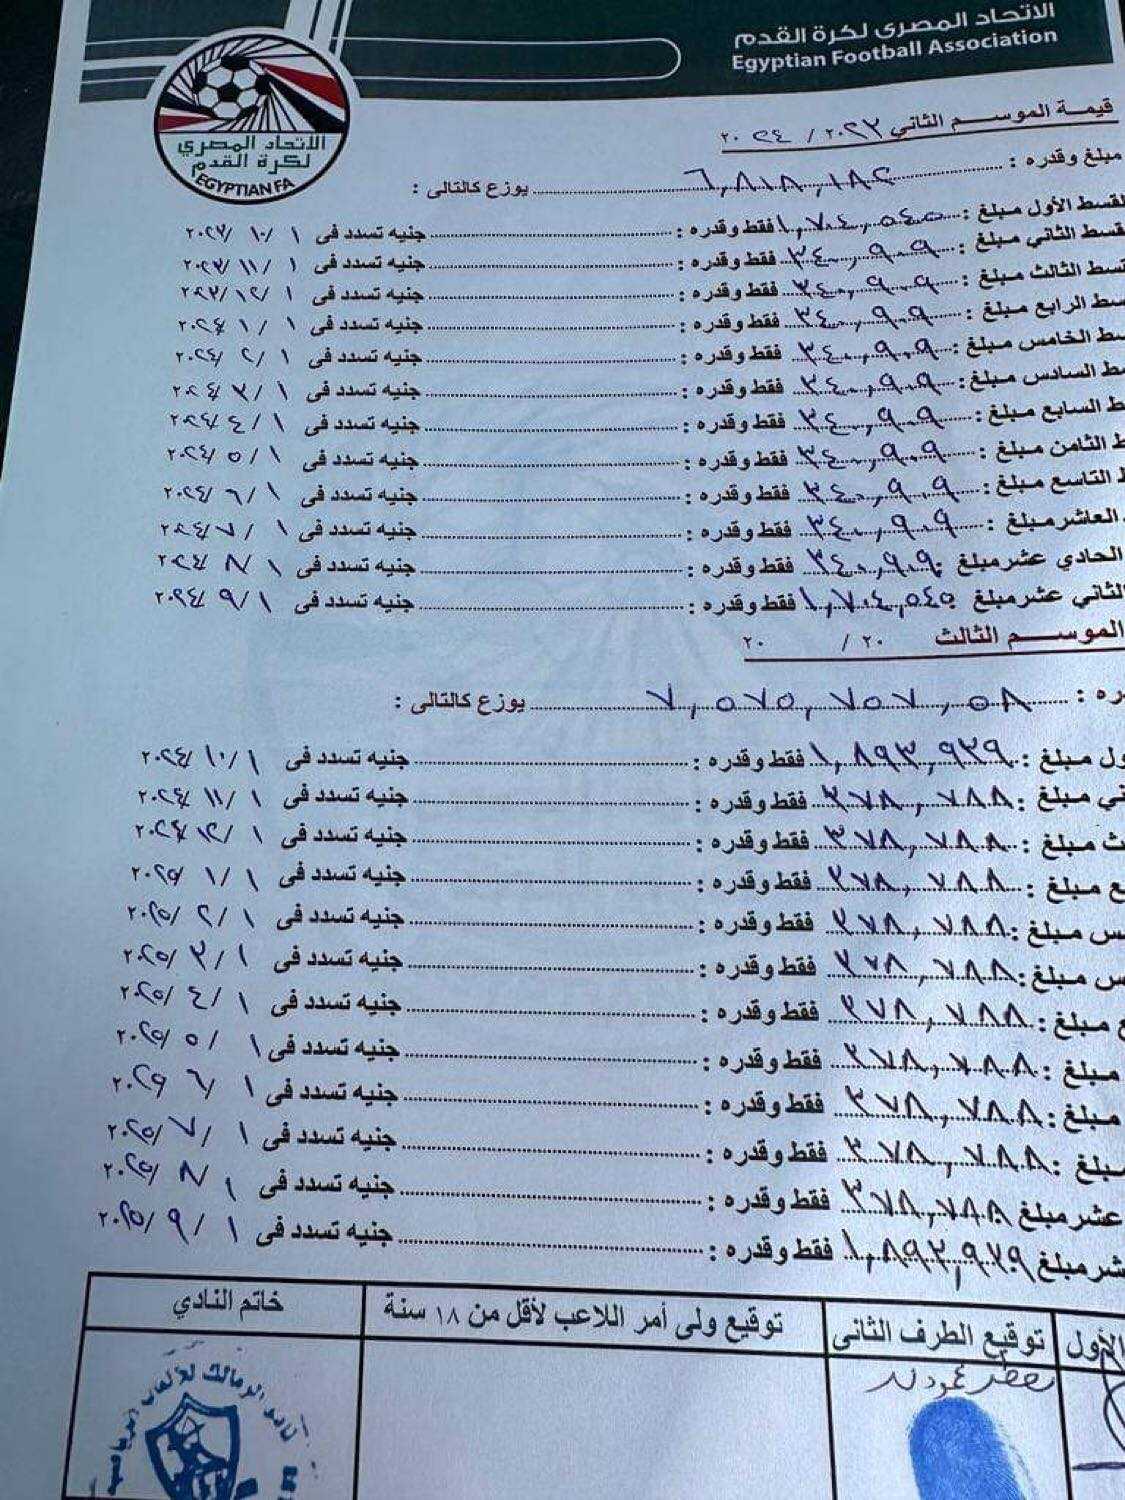 الاتحاد المصرى لكرة القدم
Egyptian Football Association
الاتحاد المصرى
لكرة القدم
EGYPTIAN FA
قيمة الموسم الثاني ٢٠٢٣ / ٢٠٢٤
مبلغ وقدره : ٦,٨١٨,١٨٢ يوزع كالتالى :
لقسط الأول مبلغ : ١,٧٠٤,٥٤٥ فقط وقدره : جنيه تسدد فى ١ / ١٠ / ٢٠٢٣
قسط الثاني مبلغ : ٣٤٠,٩٠٩ فقط وقدره : جنيه تسدد فى ١ / ١١ / ٢٠٢٣
قسط الثالث مبلغ : ٣٤٠,٩٠٩ فقط وقدره : جنيه تسدد فى ١ / ١٢ / ٢٠٢٣
سط الرابع مبلغ : ٣٤٠,٩٠٩ فقط وقدره : جنيه تسدد فى ١ / ١ / ٢٠٢٤
سط الخامس مبلغ : ٣٤٠,٩٠٩ فقط وقدره : جنيه تسدد فى ١ / ٢ / ٢٠٢٤
سط السادس مبلغ : ٣٤٠,٩٠٩ فقط وقدره : جنيه تسدد فى ١ / ٣ / ٢٠٢٤
ط السابع مبلغ : ٣٤٠,٩٠٩ فقط وقدره : جنيه تسدد فى ١ / ٤ / ٢٠٢٤
ط الثامن مبلغ : ٣٤٠,٩٠٩ فقط وقدره : جنيه تسدد فى ١ / ٥ / ٢٠٢٤
ط التاسع مبلغ : ٣٤٠,٩٠٩ فقط وقدره : جنيه تسدد فى ١ / ٦ / ٢٠٢٤
العاشر مبلغ : ٣٤٠,٩٠٩ فقط وقدره : جنيه تسدد فى ١ / ٧ / ٢٠٢٤
الحادي عشر مبلغ : ٣٤٠,٩٠٩ فقط وقدره : جنيه تسدد فى ١ / ٨ / ٢٠٢٤
الثاني عشر مبلغ ١,٧٠٤,٥٤٥ فقط وقدره : جنيه تسدد فى ١ / ٩ / ٢٠٢٤
الموسم الثالث ٢٠ / ٢٠
ره : ٧,٥٧٥,٧٥٧,٥٨ يوزع كالتالى :
ول مبلغ : ١,٨٩٣,٩٣٩ فقط وقدره : جنيه تسدد فى ١ / ١٠ / ٢٠٢٤
ني مبلغ : ٣٧٨,٧٨٨ فقط وقدره : جنيه تسدد فى ١ / ١١ / ٢٠٢٤
ث مبلغ : ٣٧٨,٧٨٨ فقط وقدره : جنيه تسدد فى ١ / ١٢ / ٢٠٢٤
ع مبلغ : ٣٧٨,٧٨٨ فقط وقدره : جنيه تسدد فى ١ / ١ / ٢٠٢٥
مس مبلغ : ٣٧٨,٧٨٨ فقط وقدره : جنيه تسدد فى ١ / ٢ / ٢٠٢٥
س مبلغ : ٣٧٨,٧٨٨ فقط وقدره : جنيه تسدد فى ١ / ٣ / ٢٠٢٥
ع مبلغ : ٣٧٨,٧٨٨ فقط وقدره : جنيه تسدد فى ١ / ٤ / ٢٠٢٥
مبلغ : ٣٧٨,٧٨٨ فقط وقدره : جنيه تسدد فى ١ / ٥ / ٢٠٢٥
مبلغ : ٣٧٨,٧٨٨ فقط وقدره : جنيه تسدد فى ١ / ٦ / ٢٠٢٥
مبلغ : ٣٧٨,٧٨٨ فقط وقدره : جنيه تسدد فى ١ / ٧ / ٢٠٢٥
عشر مبلغ ٣٧٨,٧٨٨ فقط وقدره : جنيه تسدد فى ١ / ٨ / ٢٠٢٥
شر مبلغ ١,٨٩٣,٩٣٩ فقط وقدره : جنيه تسدد فى ١ / ٩ / ٢٠٢٥
الأول توقيع الطرف الثانى توقيع ولى أمر اللاعب لأقل من ١٨ سنة خاتم النادي
نادى الزمالك للألعاب الرياضية